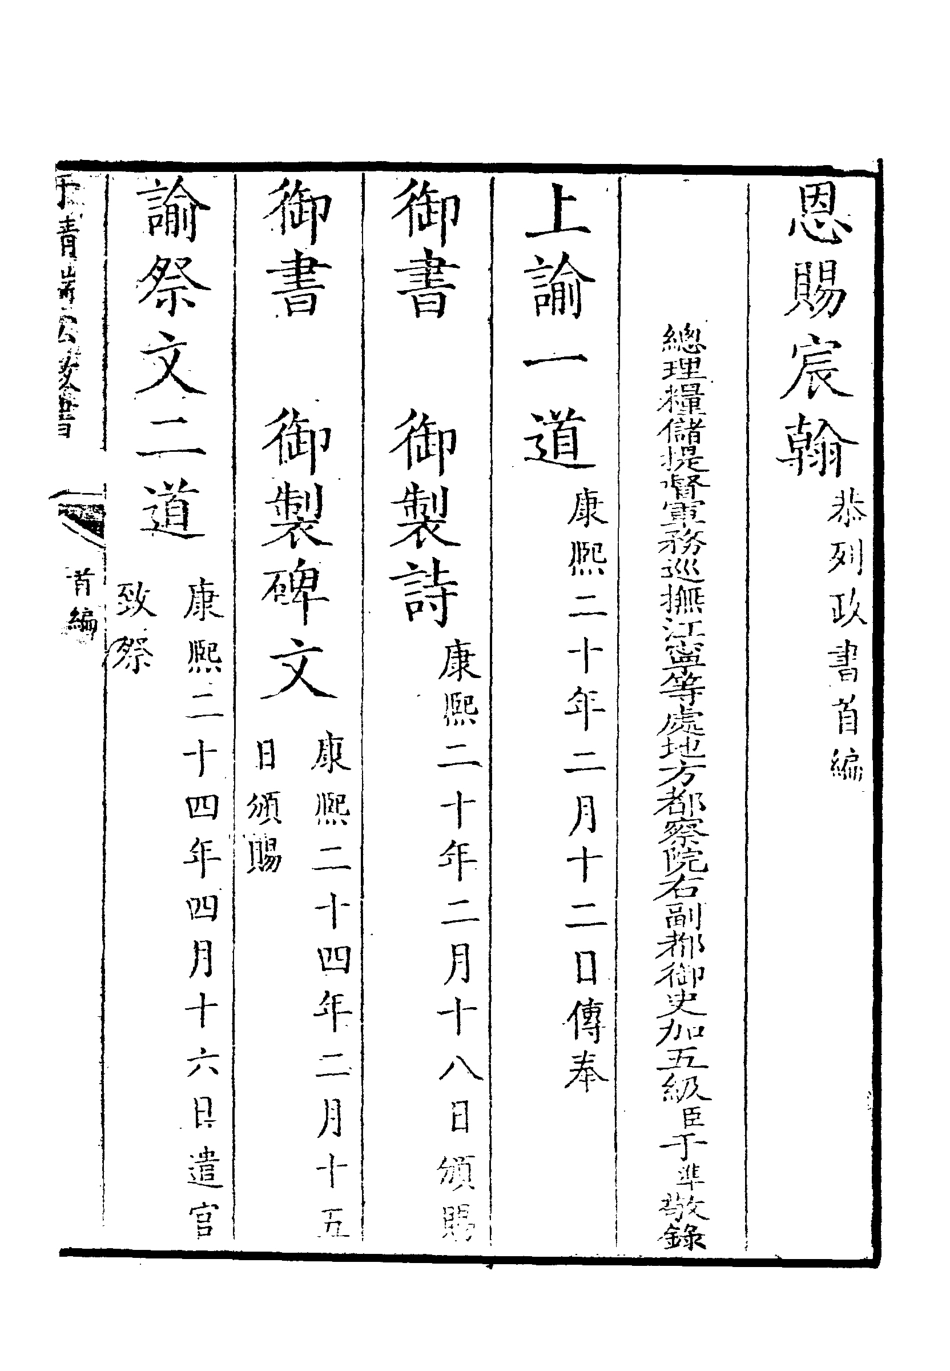 恩賜宸翰恭列政書首編
總理糧儲提督軍務巡撫江寧等處地方都察院右副都御史加五級臣于準敬錄
上諭一道康熙二十年二月十二日傳奉
御書　御製詩康熙二十年二月十八日頒賜
御書　御製碑文康熙二十四年二月十五
日頒賜
諭祭文二道康熙二十四年四月十六日遣官
致祭
于清端公政書
首編